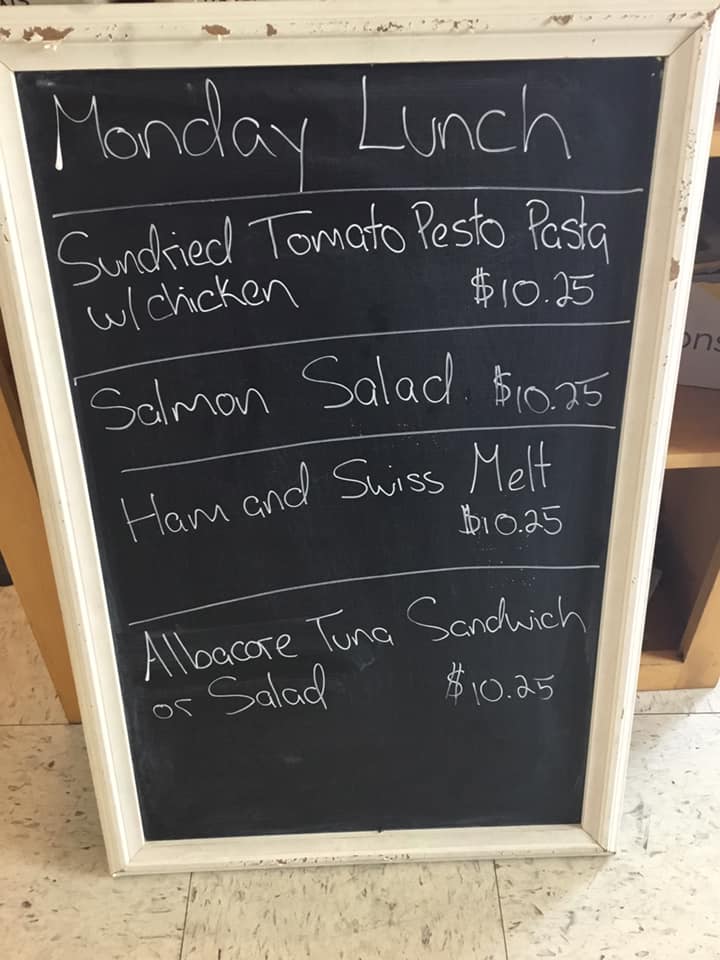 Monday Lunch
Sundried Tomato Pesto Pasta
w/ chicken $10.25
Salmon Salad $10.25
Ham and Swiss Melt
$10.25
Allbacore Tuna Sandwich
or Salad $10.25